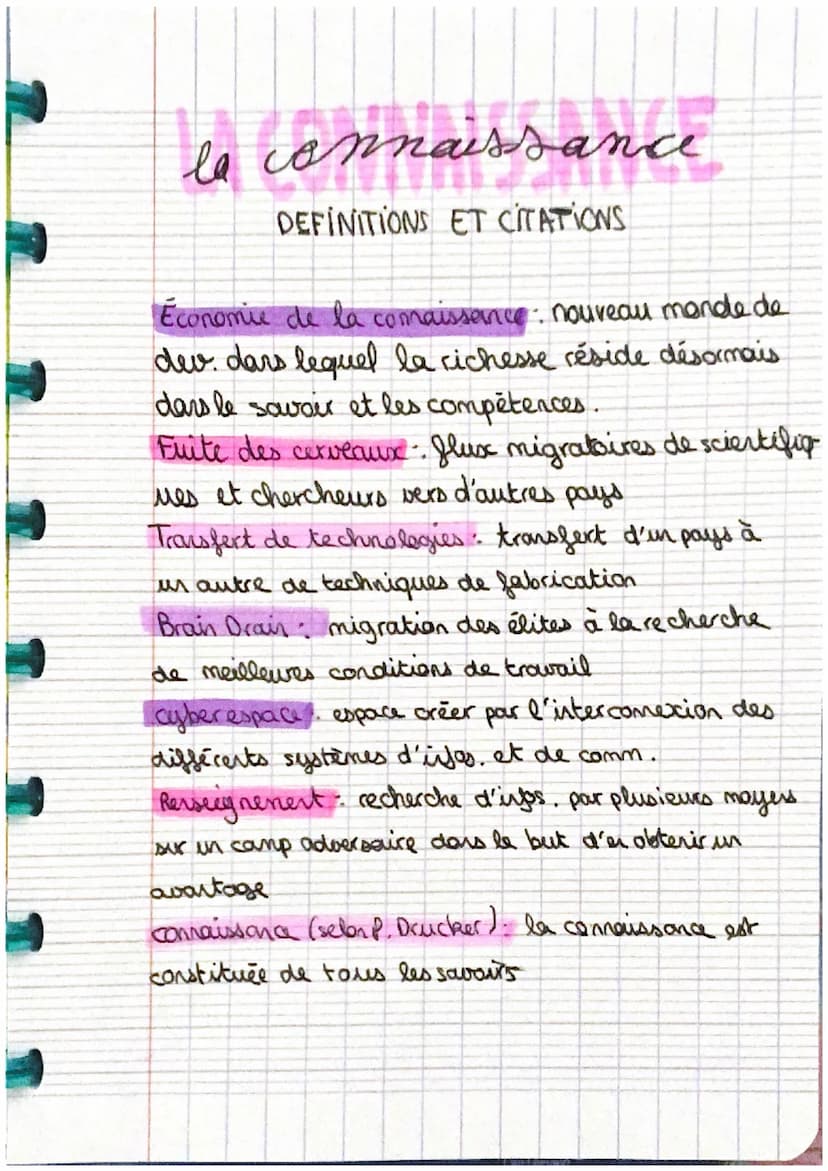 LA CONNAISSANCE
la connaissance
DEFINITIONS ET CITATIONS
Économie de la connaissance : nouveau monde de
dev. dans lequel la richesse réside désormais
dans le savoir et les compétences.
Fuite des cerveaux : flux migratoires de scientifiq-
ues et chercheurs vers d'autres pays
Transfert de technologies : transfert d'un pays à
un autre de techniques de fabrication
Brain Drain : migration des élites à la recherche
de meilleures conditions de travail
cyberespace : espace créer par l'interconnexion des
différents systèmes d'infos. et de comm.
Renseignement : recherche d'infos. par plusieurs moyens
sur un camp adversaire dans le but d'en obtenir un
avantage
connaissance (selon P. Drucker) : la connaissance est
constituée de tous les savoirs